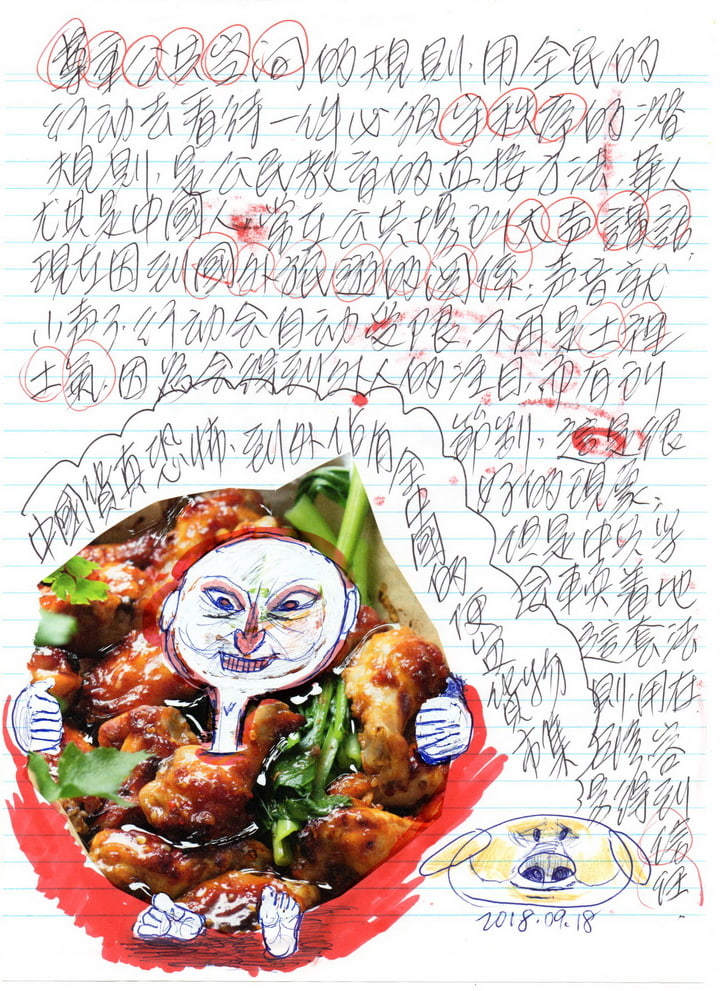 尊重公共空间的規則.用全民的
行动去看待一件必须守秩序的潛
規則.是公民教育的直接方法.華人
尤其是中國人.常在公共場所大声講話
現在因到國外旅遊的関係.声音就
小声了.行动会自动受限.不再是土裡
土氣.因為会得到外人的注目.而有所
節制.這是很
好的現象.
但是中央学
会車
着地
這套法
則.用在
容
易得到
信任
中國貨真恐怖.到外佔有全中國的便宜貨物市集
2018.09.18